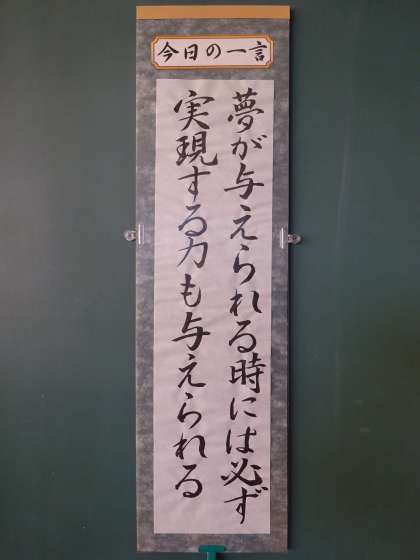 今日の一言
夢が与えられる時には必ず
実現する力も与えられる